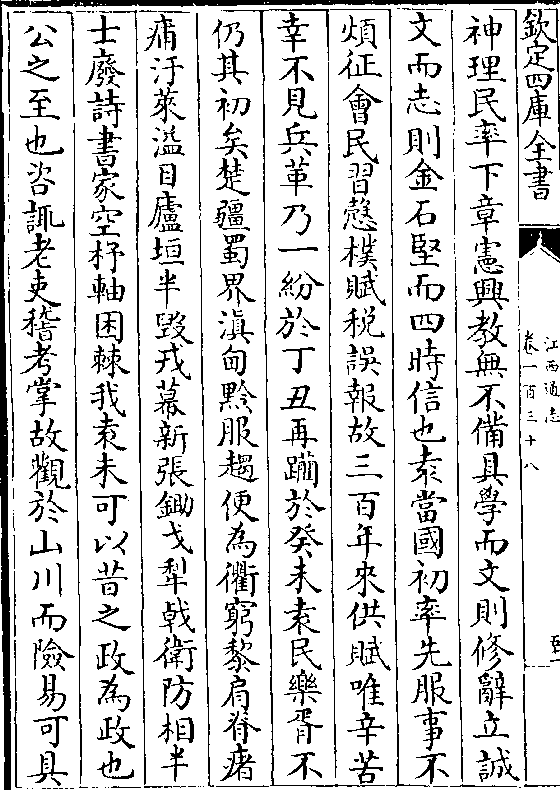 欽定四庫全書
江西通志
卷一百三十八
神理民率下章憲興教無不備具學而文則修辭立誠
文而志則金石堅而四時信也袁當國初率先服事不
煩征會民習愨樸賦税誤報故三百年來供賦唯辛苦
幸不見兵革乃一紛於丁丑再躪於癸未袁民樂胥不
仍其初矣楚疆蜀界滇甸黔服趨便為衢窮黎肩脊瘏
痡汙萊溢目廬垣半毀戎幕新張鋤戈犁戟衛防相半
士廢詩書家空杼軸困棘我袁未可以昔之政為政也
公之至也咨諏老吏稽考掌故觀於山川而險易可具